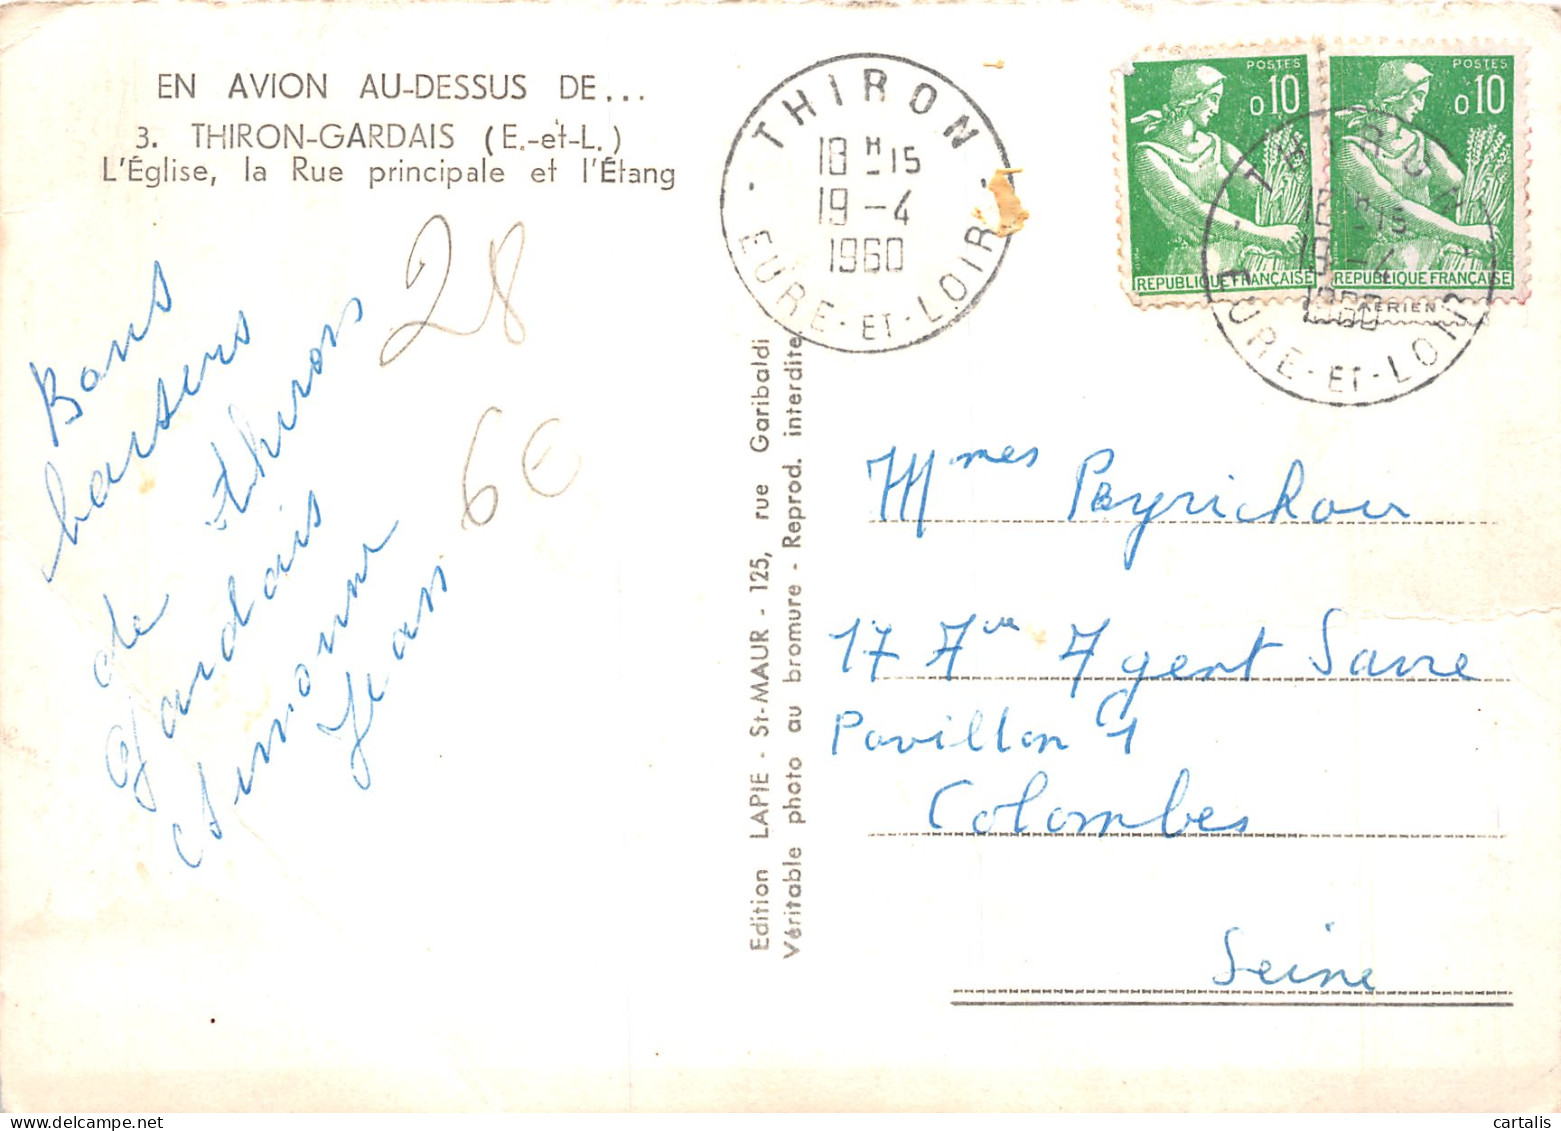 EN AVION AU-DESSUS DE...
3. THIRON-GARDAIS (E.-et-L.)
L'Église, la Rue principale et l'Étang
28
6€
Bons
baisers
de thirons
Gardais
Simonne
Jean
Edition LAPIE - St-MAUR - 125, rue Garibaldi
Véritable photo au bromure - Reprod. interdite
THIRON
18 H 15
19 - 4
1960
EURE-ET-LOIR
POSTES
0,10
REPUBLIQUE FRANÇAISE
POSTES
0,10
REPUBLIQUE FRANÇAISE
THIRON
18 H 15
19 - 4
1960
EURE-ET-LOIR
AERIEN
Mmes Peyrichou
17 Ave Agent Sarre
Pavillon 1
Colombes
Seine
cartalis